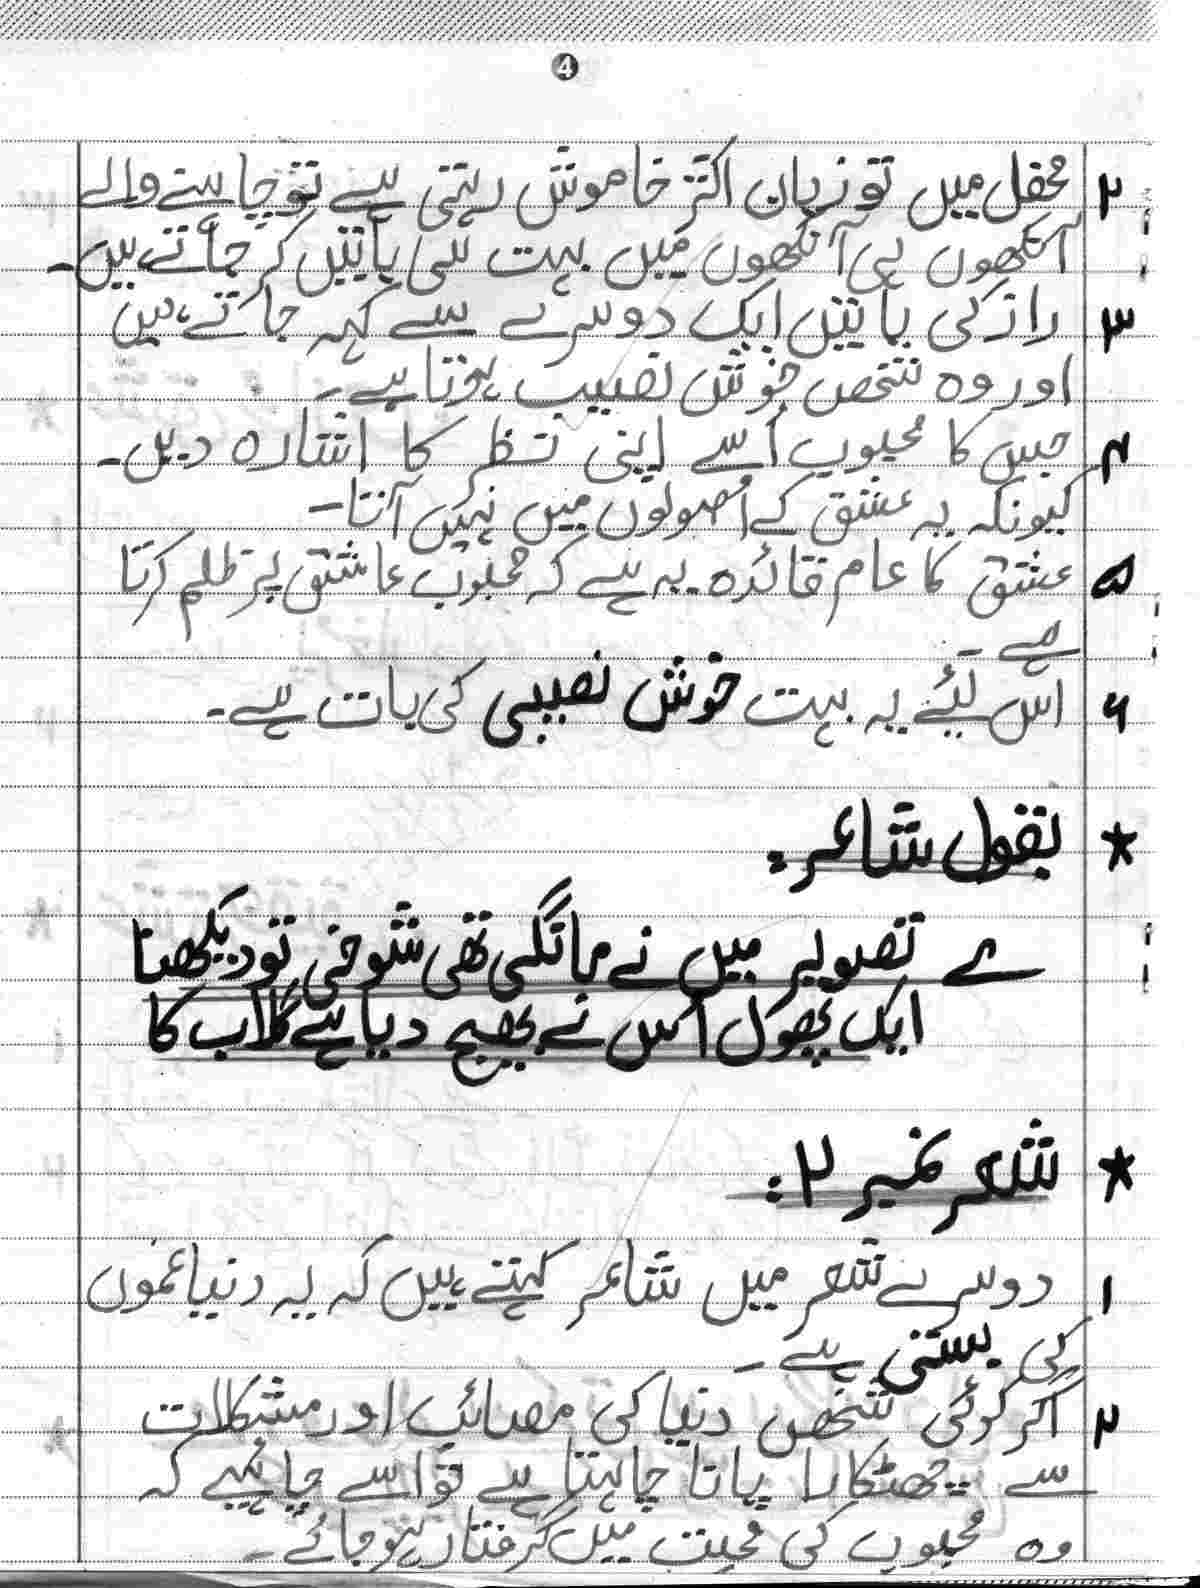 4
۲ محفل میں تو زبان اکثر خاموش رہتی ہے تو چاہنے والے
آنکھوں ہی آنکھوں میں بہت سی باتیں کر جاتے ہیں۔
۳ راز کی باتیں ایک دوسرے سے کہہ جاتے ہیں
اور وہ شخص خوش نصیب ہوتا ہے۔
۴ جس کا محبوب اُسے اپنی نظر کا اشارہ دیں۔
کیونکہ یہ عشق کے اُصولوں میں نہیں آتا۔
۵ عشق کا عام قائدہ یہ ہے کہ محبوب عاشق پر ظلم کرتا
ہے۔
۶ اس لیئے یہ بہت خوش نصیبی کی بات ہے۔
★ بقول شاعر:
؎ تصویر میں نے مانگی تھی شوخی تو دیکھنا
ایک پھول اُس نے بھیج دیا ہے گلاب کا
★ شعر نمبر ۲:
۱ دوسرے شعر میں شاعر کہتے ہیں کہ یہ دنیا غموں
کی بستی ہے۔
۲ اگر کوئی شخص دنیا کی مصائب اور مشکلات
سے چھٹکارا پانا چاہتا ہے تو اسے چاہیے کہ
وہ محبوب کی محبت میں گرفتار ہو جائے۔